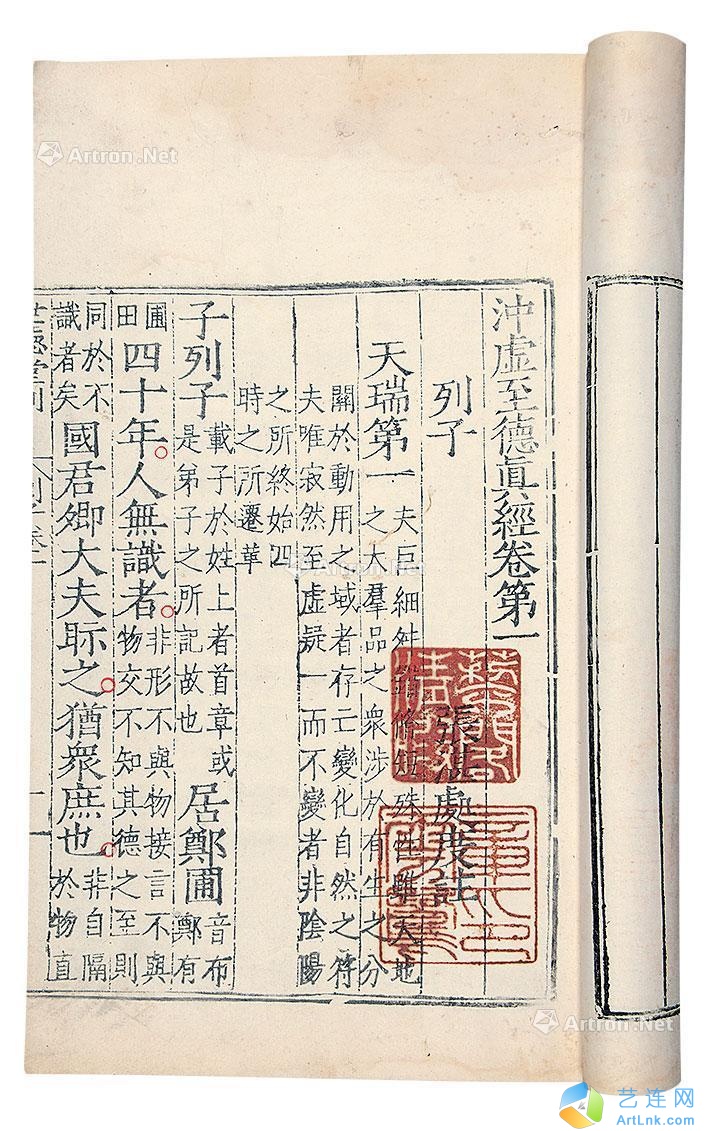 沖虛至德眞經卷第一
列子 張湛處度註
天瑞第一 夫巨細舛錯脩短殊性雖天地
之大羣品之衆涉於有生之分
關於動用之域者存亡變化自然之符
夫唯寂然至虛疑一而不變者非陰陽
之所終始四
時之所遷革
子列子 載子於姓上者首章或
是弟子之所記故也 居鄭圃 音布
鄭有
圃
田 四十年人無識者 非形不與物接言不與
物交不知其德之至則
同於不
識者矣 國君卿大夫眎之猶衆庶也 非自隔
於物直
世德堂刊 列子卷一 一
Artron.Net
Artron.Net
Artron.Net
艺连网
ArtLnk.com